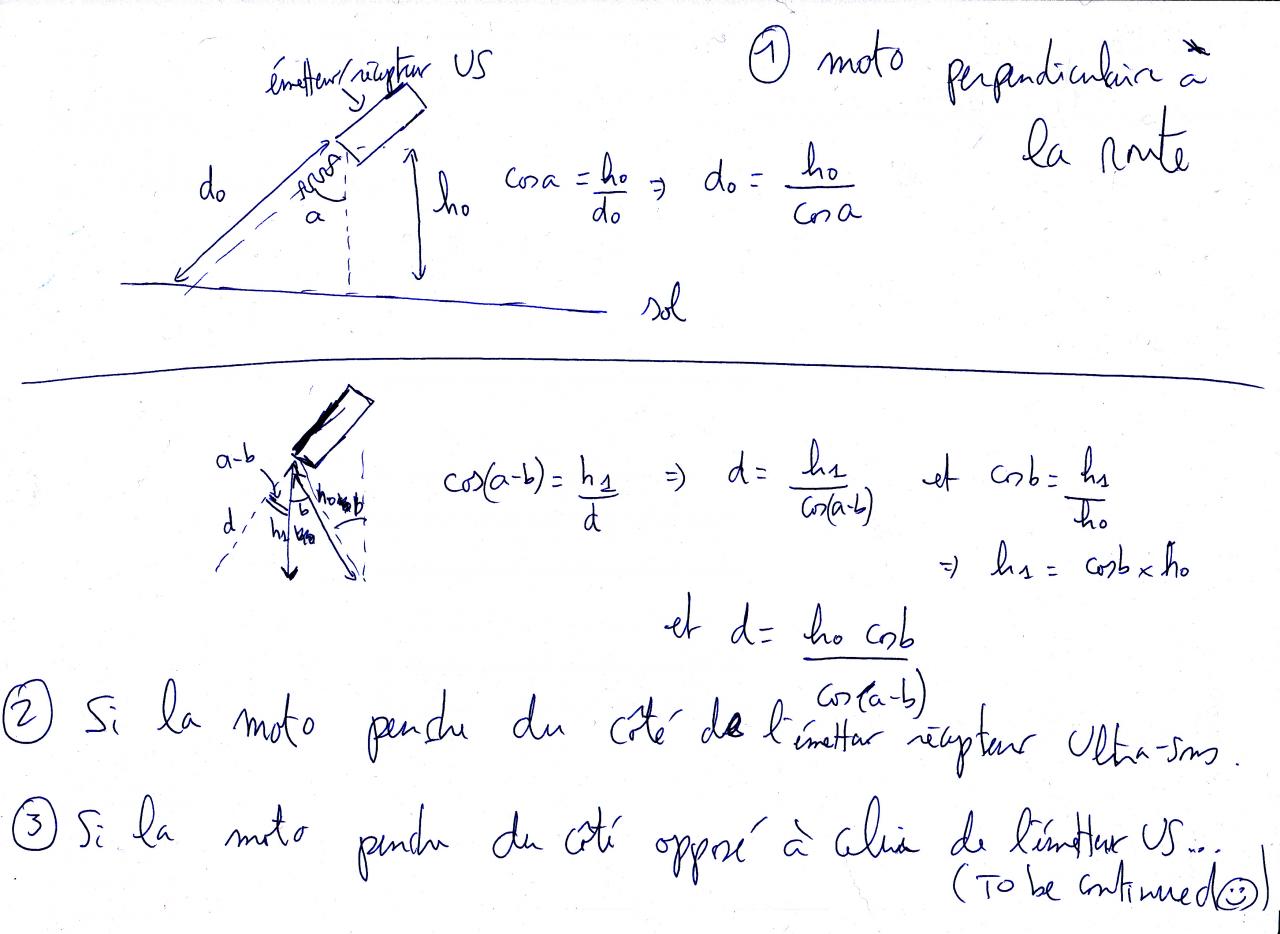 émetteur/récepteur US
① moto perpendiculaire à
la route
d₀
a
h₀
cos a = h₀/d₀ ⇒ d₀ = h₀/cos a
sol
a-b
d
h₁
b
h₀
cos(a-b) = h₁/d ⇒ d = h₁/cos(a-b) et cos b = h₁/h₀
⇒ h₁ = cos b × h₀
et d = h₀ cos b/cos(a-b)
② Si la moto penche du côté de l'émetteur récepteur Ultra-sons.
③ Si la moto penche du côté opposé à celui de l'émetteur US...
(To be continued ☺)